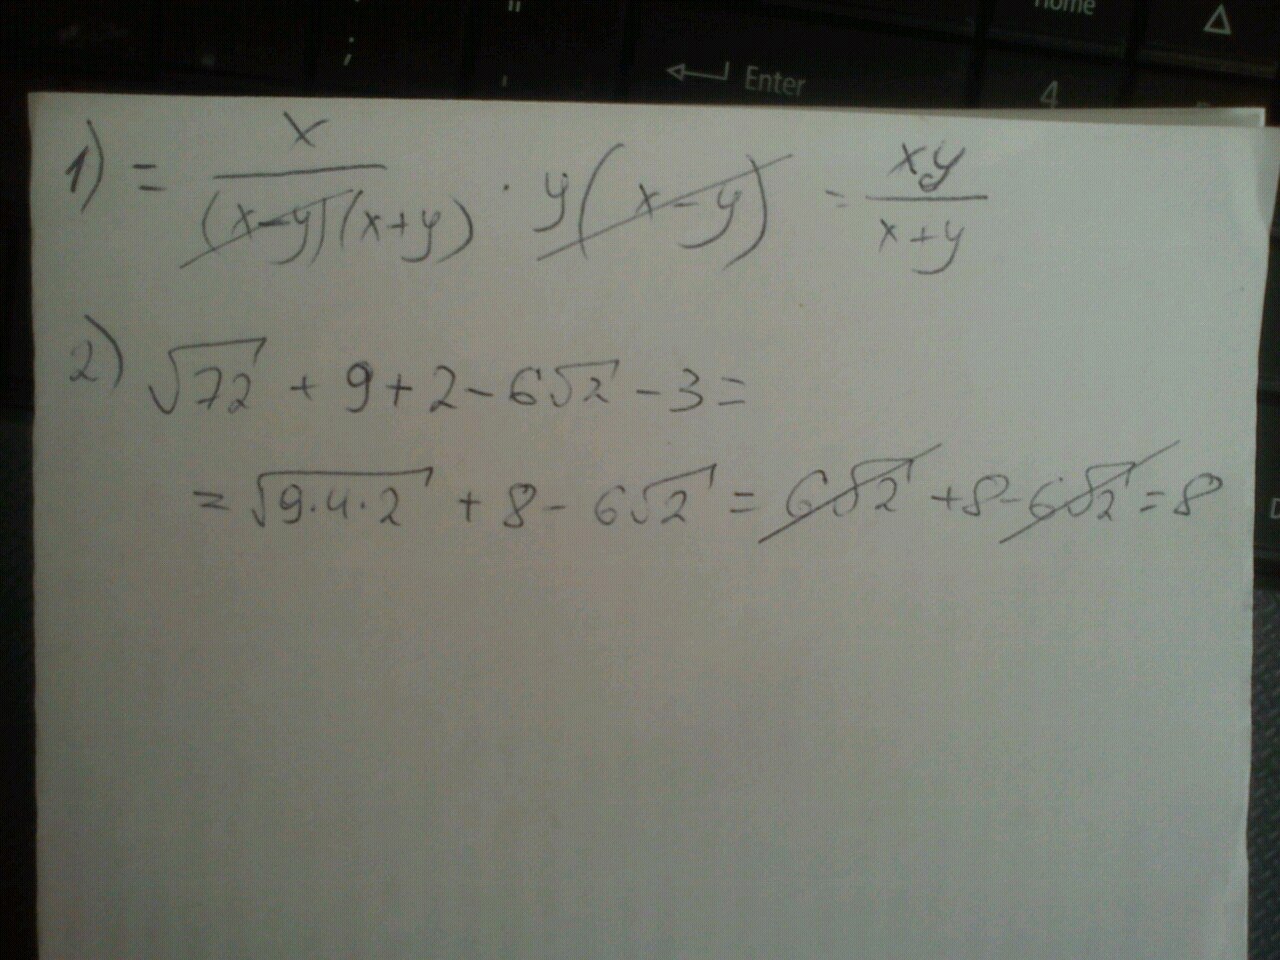 Home
;
Enter
4
1) = x / (x-y)(x+y) · y(x-y) = xy / x+y
2) √72 + 9 + 2 - 6√2 - 3 =
= √9·4·2 + 8 - 6√2 = 6√2 + 8 - 6√2 = 8